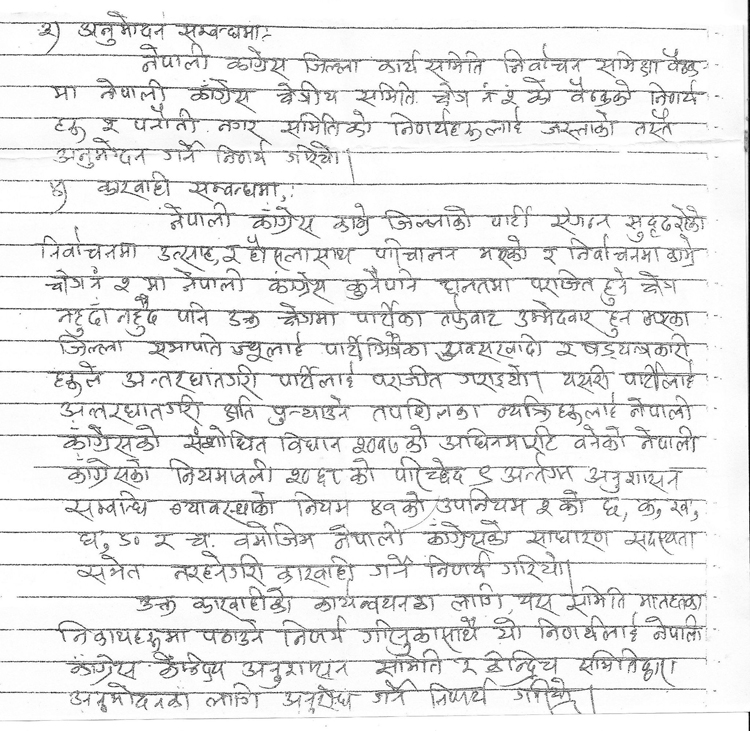 ३) अनुमोदन सम्बन्धमा:-
नेपाली कांग्रेस जिल्ला कार्य समिति निर्वाचन समिक्षा बैठक
मा नेपाली कांग्रेस क्षेत्रीय समिति क्षेत्र नं २ को बैठकको निर्णय
हरू र पनौती नगर समितिको निर्णयहरूलाई जस्ताको तस्तै
अनुमोदन गर्ने निर्णय गरियो।
४) कारवाही सम्बन्धमा,:
नेपाली कांग्रेस काभ्रे जिल्लाको पार्टी संगठन सुदृढ रहेको
निर्वाचनमा उत्साह, र हौसलासाथ परिचालन भएको र निर्वाचनमा काभ्रे
क्षेत्र नं २ मा नेपाली कांग्रेस कुनैपनि हालतमा पराजित हुने क्षेत्र
नहुदाँ नहुदै पनि उक्त क्षेत्रमा पार्टीका तर्फबाट उम्मेदवार हुनु भएका
जिल्ला सभापति ज्यूलाई पार्टी भित्रैका अवसरवादी र षडयन्त्रकारी
हरूले अन्तरघातगरी पार्टीलाई पराजीत गराइयो। यसरी पार्टीलाई
अन्तरघातगरी क्षति पुन्याउने तपशिलका व्यक्तिहरूलाई नेपाली
कांग्रेसको संशोधित विधान २०१७ को अधिनमा रही बनेको नेपाली
कांग्रेसको नियमावली २०६८ को परिच्छेद ९ अन्तर्गत अनुशासन
सम्बन्धि व्यवस्थाको नियम ४७ को उपनियम २ को छ, क, ख,
घ, ङ र च. बमोजिम नेपाली कांग्रेसको साधारण सदस्यता
समेत नरहनेगरी कारवाही गर्ने निर्णय गरियो।
उक्त कारवाहीको कार्यन्वयनका लागि यस समिति मातहतका
निकायहरूमा पठाउने निर्णय गरिनुकासाथै यो निर्णयलाई नेपाली
कांग्रेस केन्द्रिय अनुशासन समिति र केन्द्रिय समितिद्वारा
अनुमोदनका लागि अनुरोध गर्ने निर्णय गरियो।